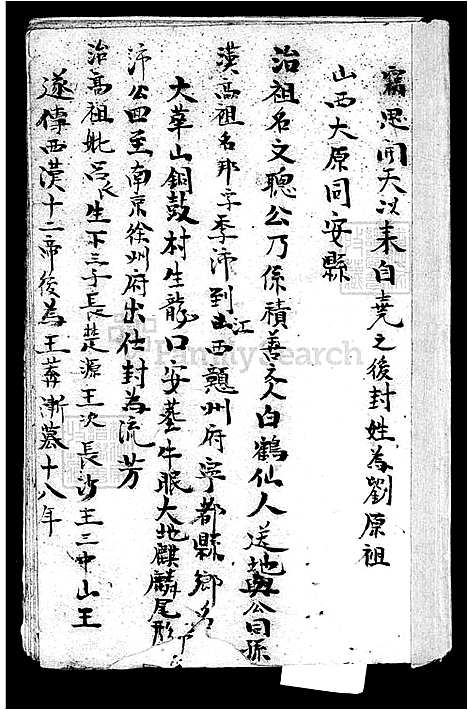 竊思開天以来自堯之後封姓為劉原祖
山西大原同安縣
治祖名文聰公乃係積善之人白鶴仙人送地與公同孫
漢高祖名邦字季沛到江西贛州府寧都縣鄉名
大草山銅鼓村生龍口安葬牛眠大地麒麟尾形
沛公四至南京徐州府出仕封為流芳
治高祖妣呂氏生下三子長楚源王次長沙王三中山王
遂傳西漢十二帝後為王莽漸篡十八年
FamilySearch